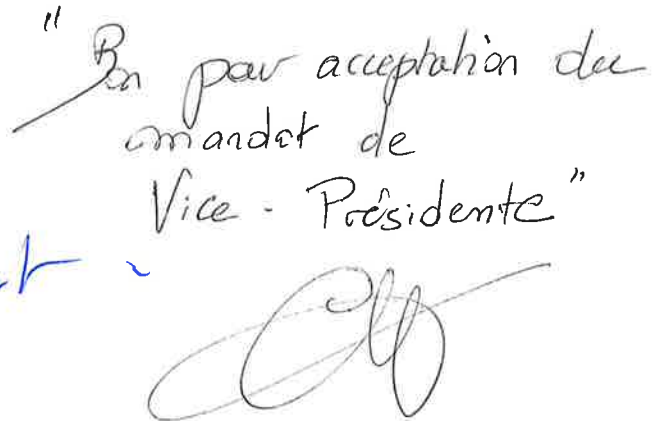 " Bon pour acceptation du
mandat de
Vice - Présidente "